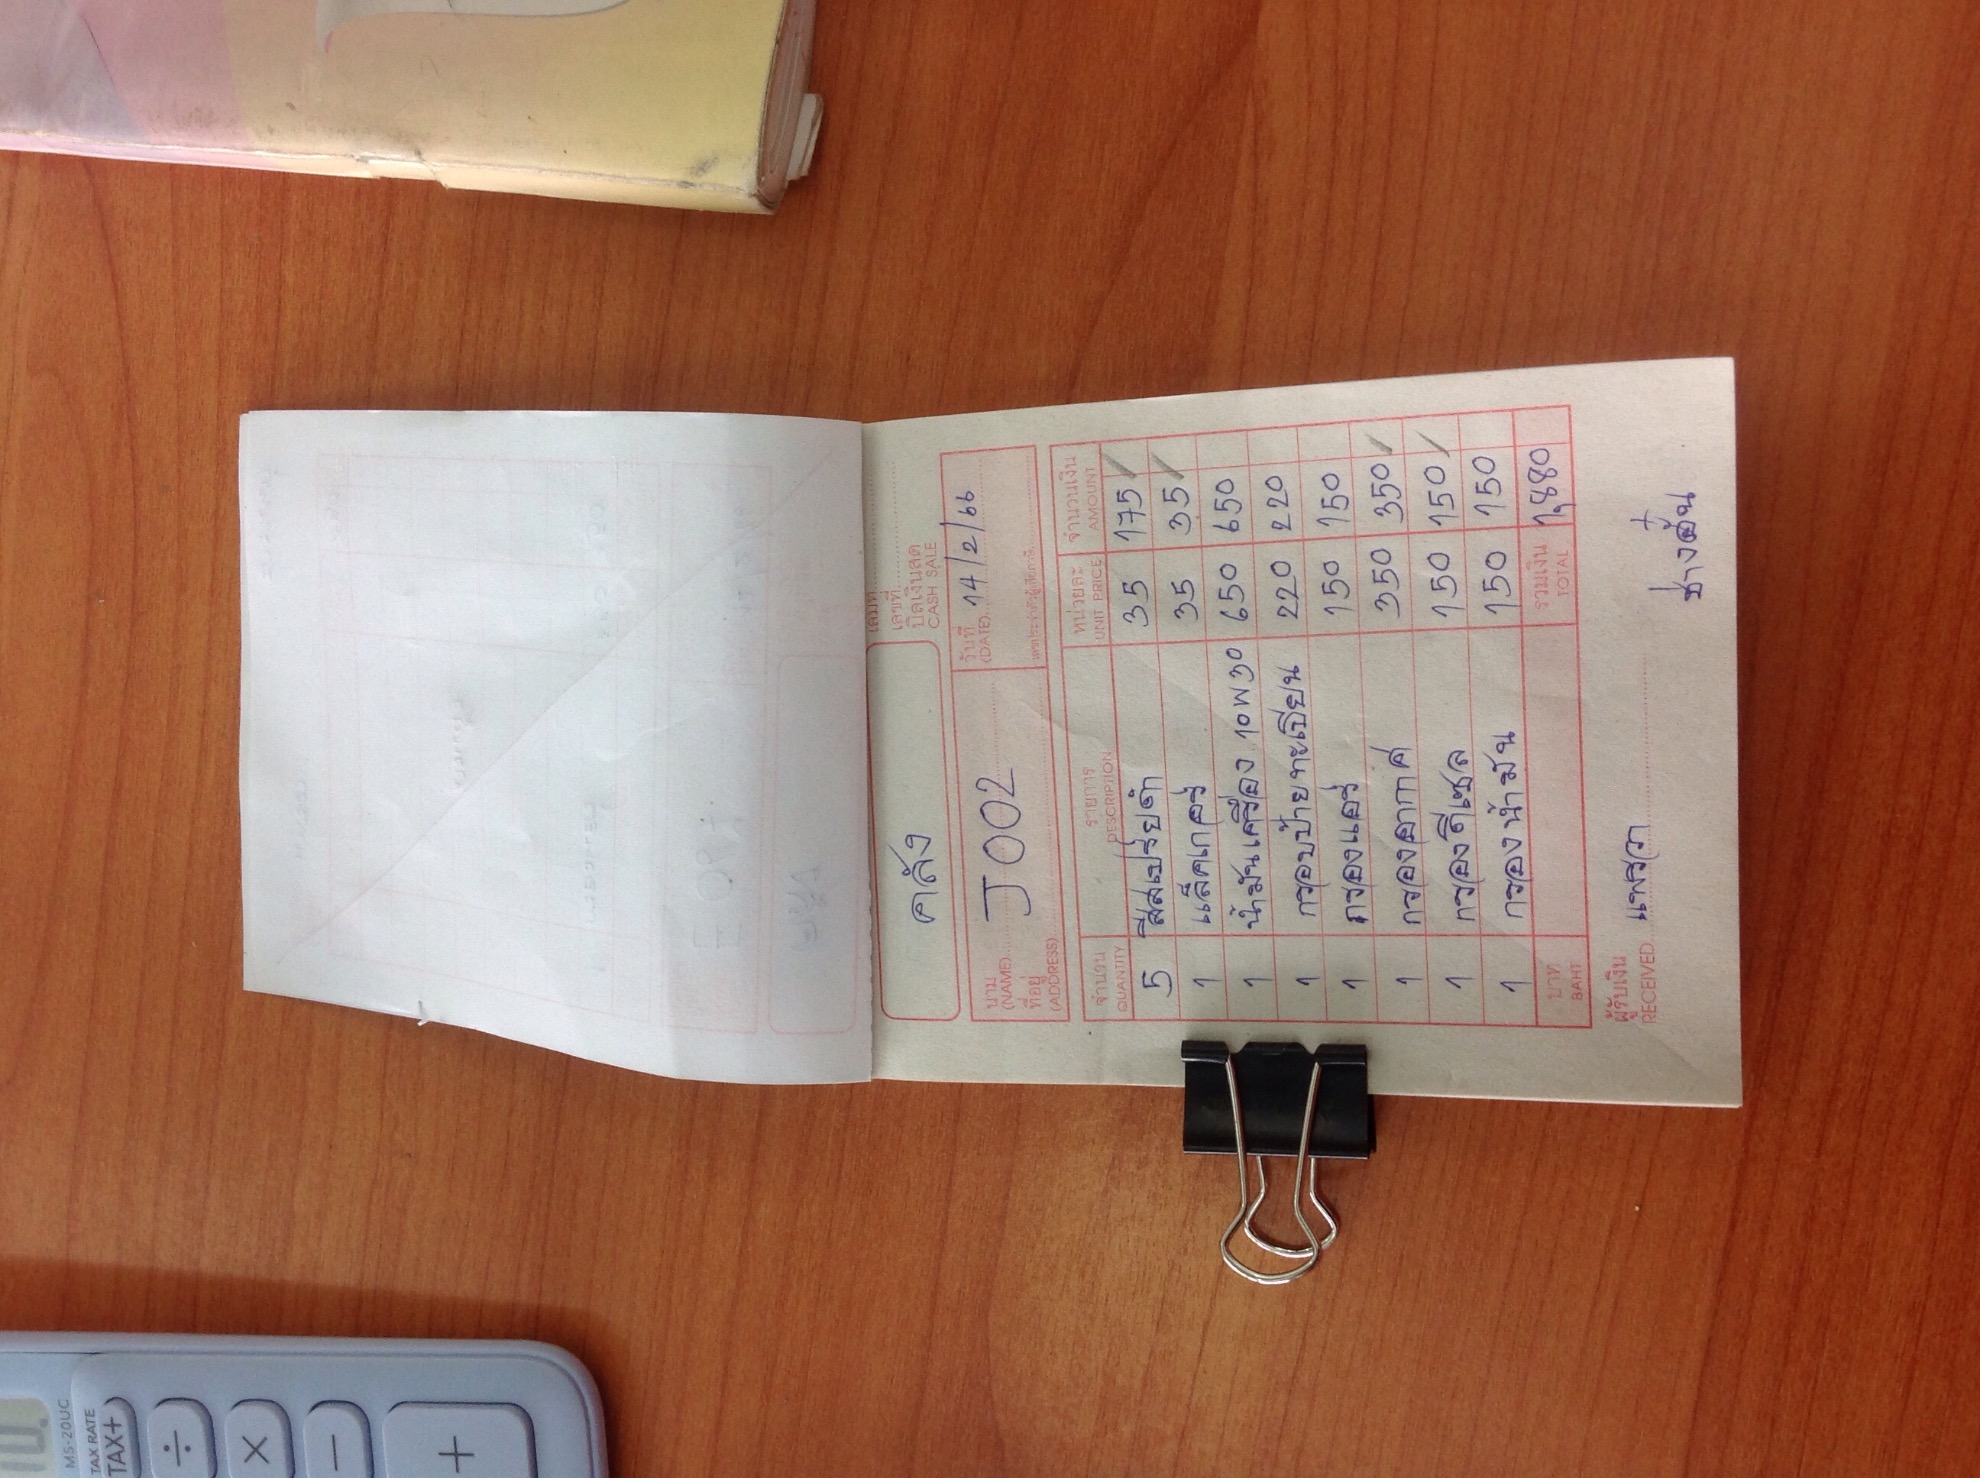 เล่มที่
เลขที่
บิลเงินสด
CASH SALE
คลัง
นาม
(NAME) J002
ที่อยู่
(ADDRESS)
วันที่
(DATE) 14/2/66
เลขประจำตัวผู้เสียภาษี
จำนวน รายการ หน่วยละ จำนวนเงิน
QUANTITY DESCRIPTION UNIT PRICE AMOUNT
5 สีสเปรย์ดำ 35 175
1 แล็คเกอร์ 35 35
1 น้ำมันเครื่อง 10W30 650 650
1 กรอบป้ายทะเบียน 220 220
1 กรองแอร์ 150 150
1 กรองอากาศ 350 350
1 กรองดีเซล 150 150
1 กรองน้ำมัน 150 150
บาท รวมเงิน 1,880
BAHT TOTAL
ผู้รับเงิน
RECEIVED แพรวา
ช่างอั๋น
MS-20UC
TAX RATE
TAX+
÷
×
−
+